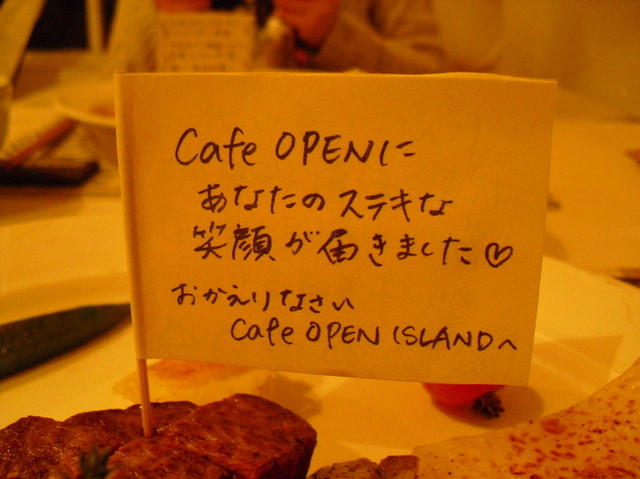 Cafe OPENに
あなたのステキな
笑顔が届きました♡
おかえりなさい
Cafe OPEN ISLANDへ